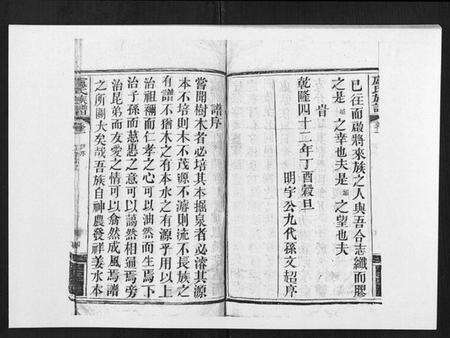 已往而啟將來族之人與吾合志纖而膠
之是 之幸也夫是 之望也夫
旹
乾隆四十二年丁酉穀旦
明宇公九代孫文紹序
譜序
嘗聞樹木者必培其本掘泉者必濬其源
本不培則木不茂源不濬則流不長族之
有譜不猶木之有本水之有源乎用以上
治祖禰而仁孝之心可以油然而生焉下
治子孫而慈惠之意可以藹然相通焉旁
治昆弟而友愛之情可以翕然成風焉譜
之所關大矣哉吾族自神農發祥姜水本
氏族譜
氏族譜